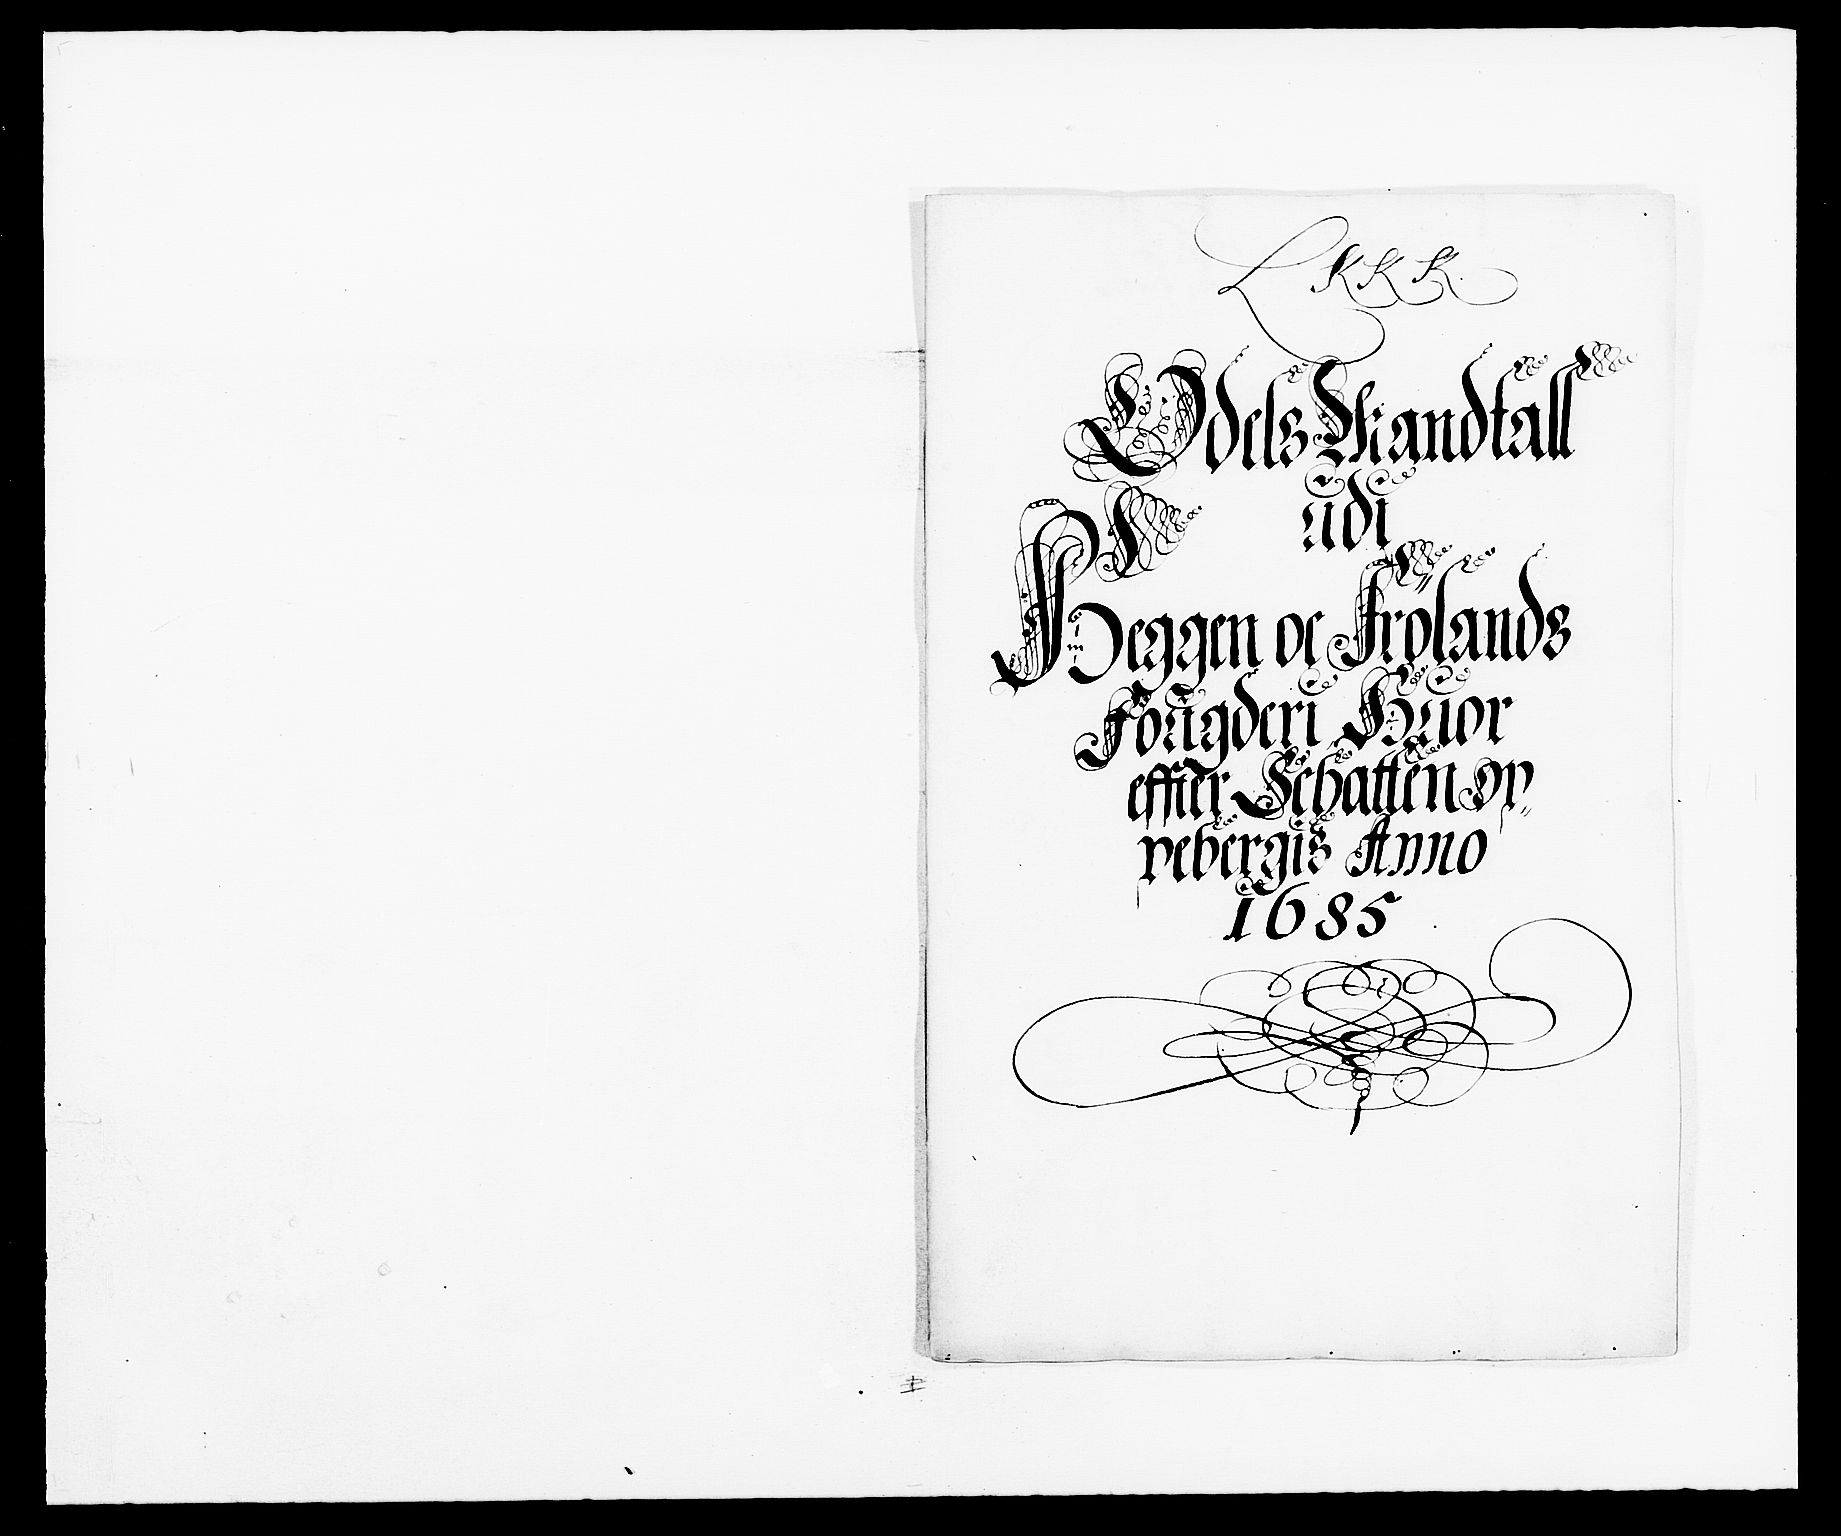 L KKK.
Odels Mandtall
udi
Heggen oc Frølands
Fougderi Huor
effter Schatten op„
pebergis Anno
1685